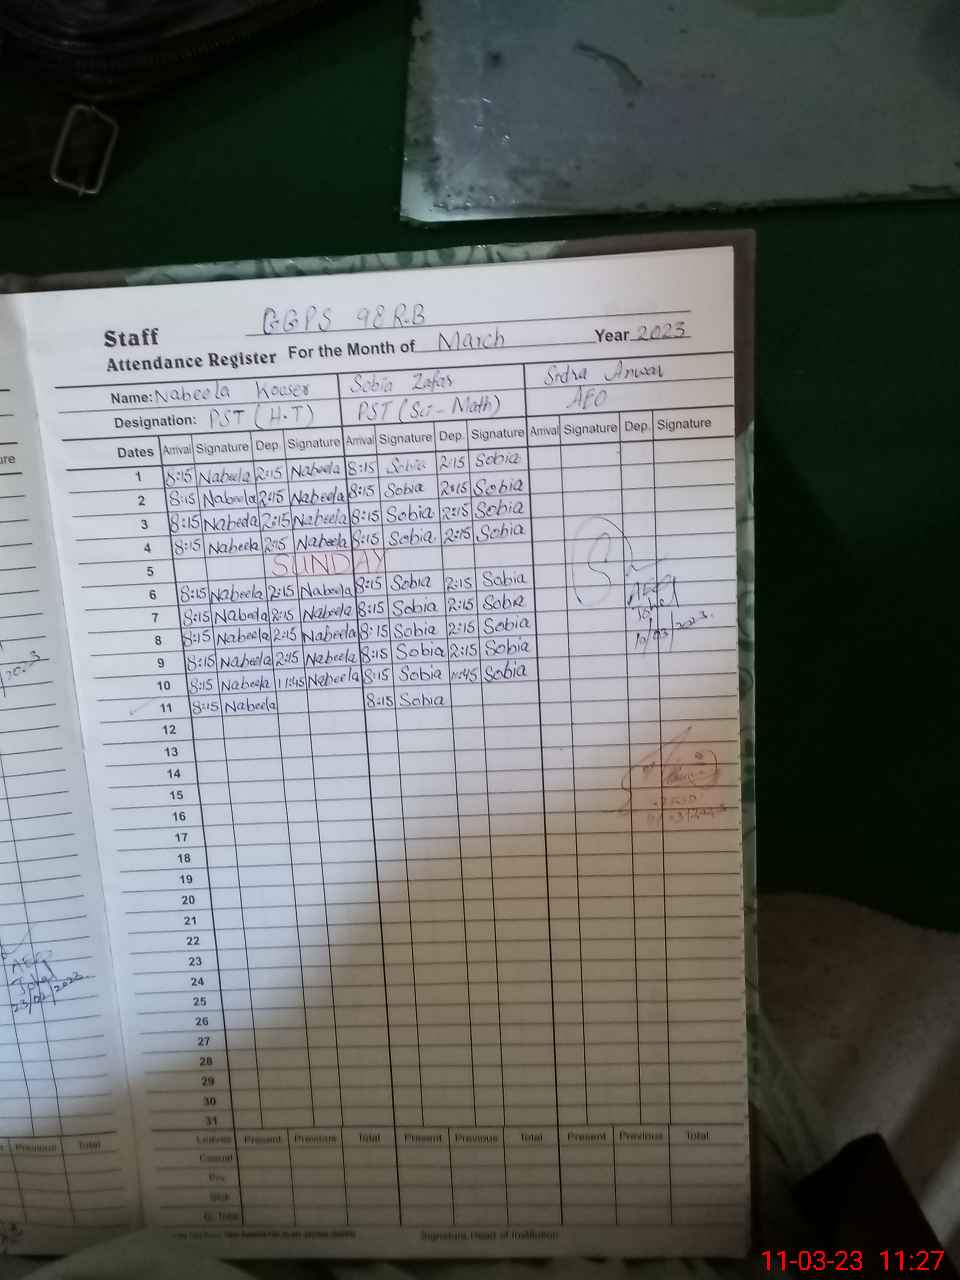 GGPS 98 R.B
Staff
Attendance Register For the Month of March Year 2023
Name: Nabeela Kooser Sobia Zafar Sidra Anwar
Designation: PST (H.T) PST (Sci-Math) AEO
Dates Arrival Signature Dep. Signature Arrival Signature Dep. Signature Arrival Signature Dep. Signature
1 8:15 Nabeela 2:15 Nabeela 8:15 Sobia 2:15 Sobia
2 8:15 Nabeela 2:15 Nabeela 8:15 Sobia 2:15 Sobia
3 8:15 Nabeela 2:15 Nabeela 8:15 Sobia 2:15 Sobia
4 8:15 Nabeela 2:15 Nabeela 8:15 Sobia 2:15 Sobia
5 SUNDAY
6 8:15 Nabeela 2:15 Nabeela 8:15 Sobia 2:15 Sobia
7 8:15 Nabeela 2:15 Nabeela 8:15 Sobia 2:15 Sobia
8 8:15 Nabeela 2:15 Nabeela 8:15 Sobia 2:15 Sobia
10/03/2023.
9 8:15 Nabeela 2:15 Nabeela 8:15 Sobia 2:15 Sobia
10 8:15 Nabeela 11:45 Nabeela 8:15 Sobia 11:45 Sobia
11 8:15 Nabeela 8:15 Sobia
12
13
14
15
16
17
18
19
20
21
22
23
24
25
26
27
28
29
30
31
Leaves Present Previous Total Present Previous Total Present Previous Total
Casual
Sick
Signature Head of Institution
Previous Total
11-03-23 11:27